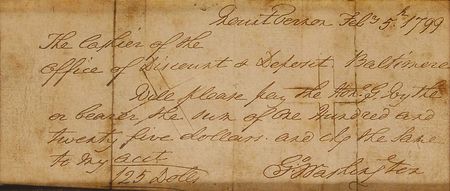 Mount Vernon Feb: 5th 1799
The Cashier of the
Office of Discount & Deposit Baltimore
please pay the Hon: G. Wythe
or bearer the sum of One Hundred and
twenty five dollars and chg the same
to my acct
125 Dolls Go Washington